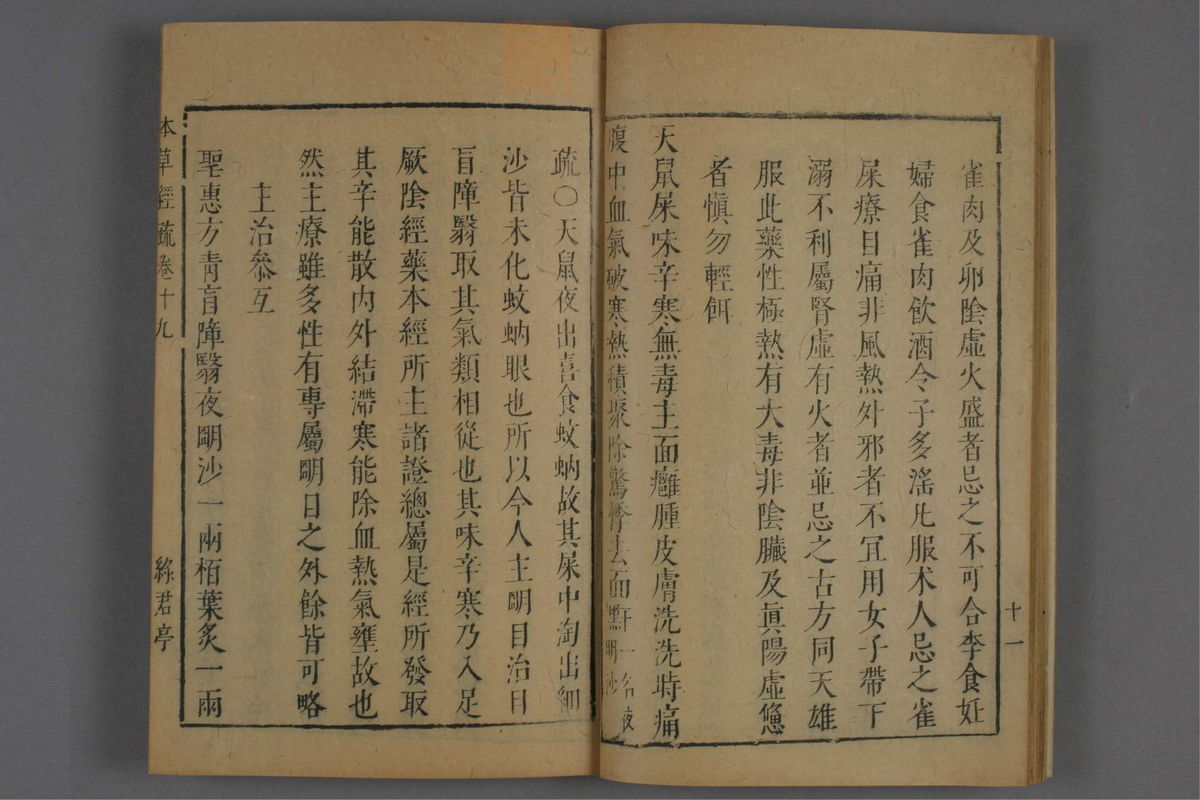 雀肉及卵陰虛火盛者忌之不可合李食妊
婦食雀肉飲酒令子多滛凡服术人忌之雀
屎療目痛非風熱外邪者不宜用女子帶下
溺不利屬腎虛有火者並忌之古方同天雄
服此藥性極熱有大毒非陰臟及眞陽虛憊
者愼勿輕餌
天鼠屎味辛寒無毒主面癰腫皮膚洗洗時痛
腹中血氣破寒熱積聚除驚悸去面䵟一名夜明沙
十一
疏〇天鼠夜出喜食蚊蚋故其屎中淘出細
沙皆未化蚊蚋眼也所以今人主明目治目
盲障翳取其氣類相從也其味辛寒乃入足
厥陰經藥本經所主諸證總屬是經所發取
其辛能散內外結滯寒能除血熱氣壅故也
然主療雖多性有專屬明目之外餘皆可略
主治參互
聖惠方靑盲障翳夜明沙一兩栢葉炙一兩
本草經疏卷十九
綠君亭